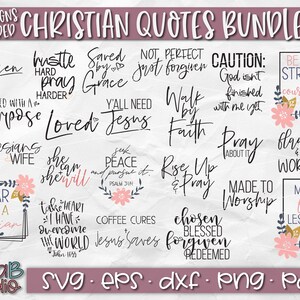 CHRISTIAN QUOTES BUNDLE
hustle
HARD
pray
HARDER
Saved
by
Grace
NOT PERFECT
Just forgiven
CAUTION:
God isn't
finished
with me yet
Loved
Y'ALL NEED
Jesus
Walk
by
Faith
WIFE
she
can
she
will
seek
PEACE
and pursue it
PSALM 34:14
Rise Up
& Pray
Pray
ABOUT IT
MADE TO
Worship
take HEART
I HAVE
overcome
THE WORLD
John 16:33
COFFEE CURES
Jesus Saves
chosen
BLESSED
forgiven
REDEEMED
SVG • EPS • DXF • PNG